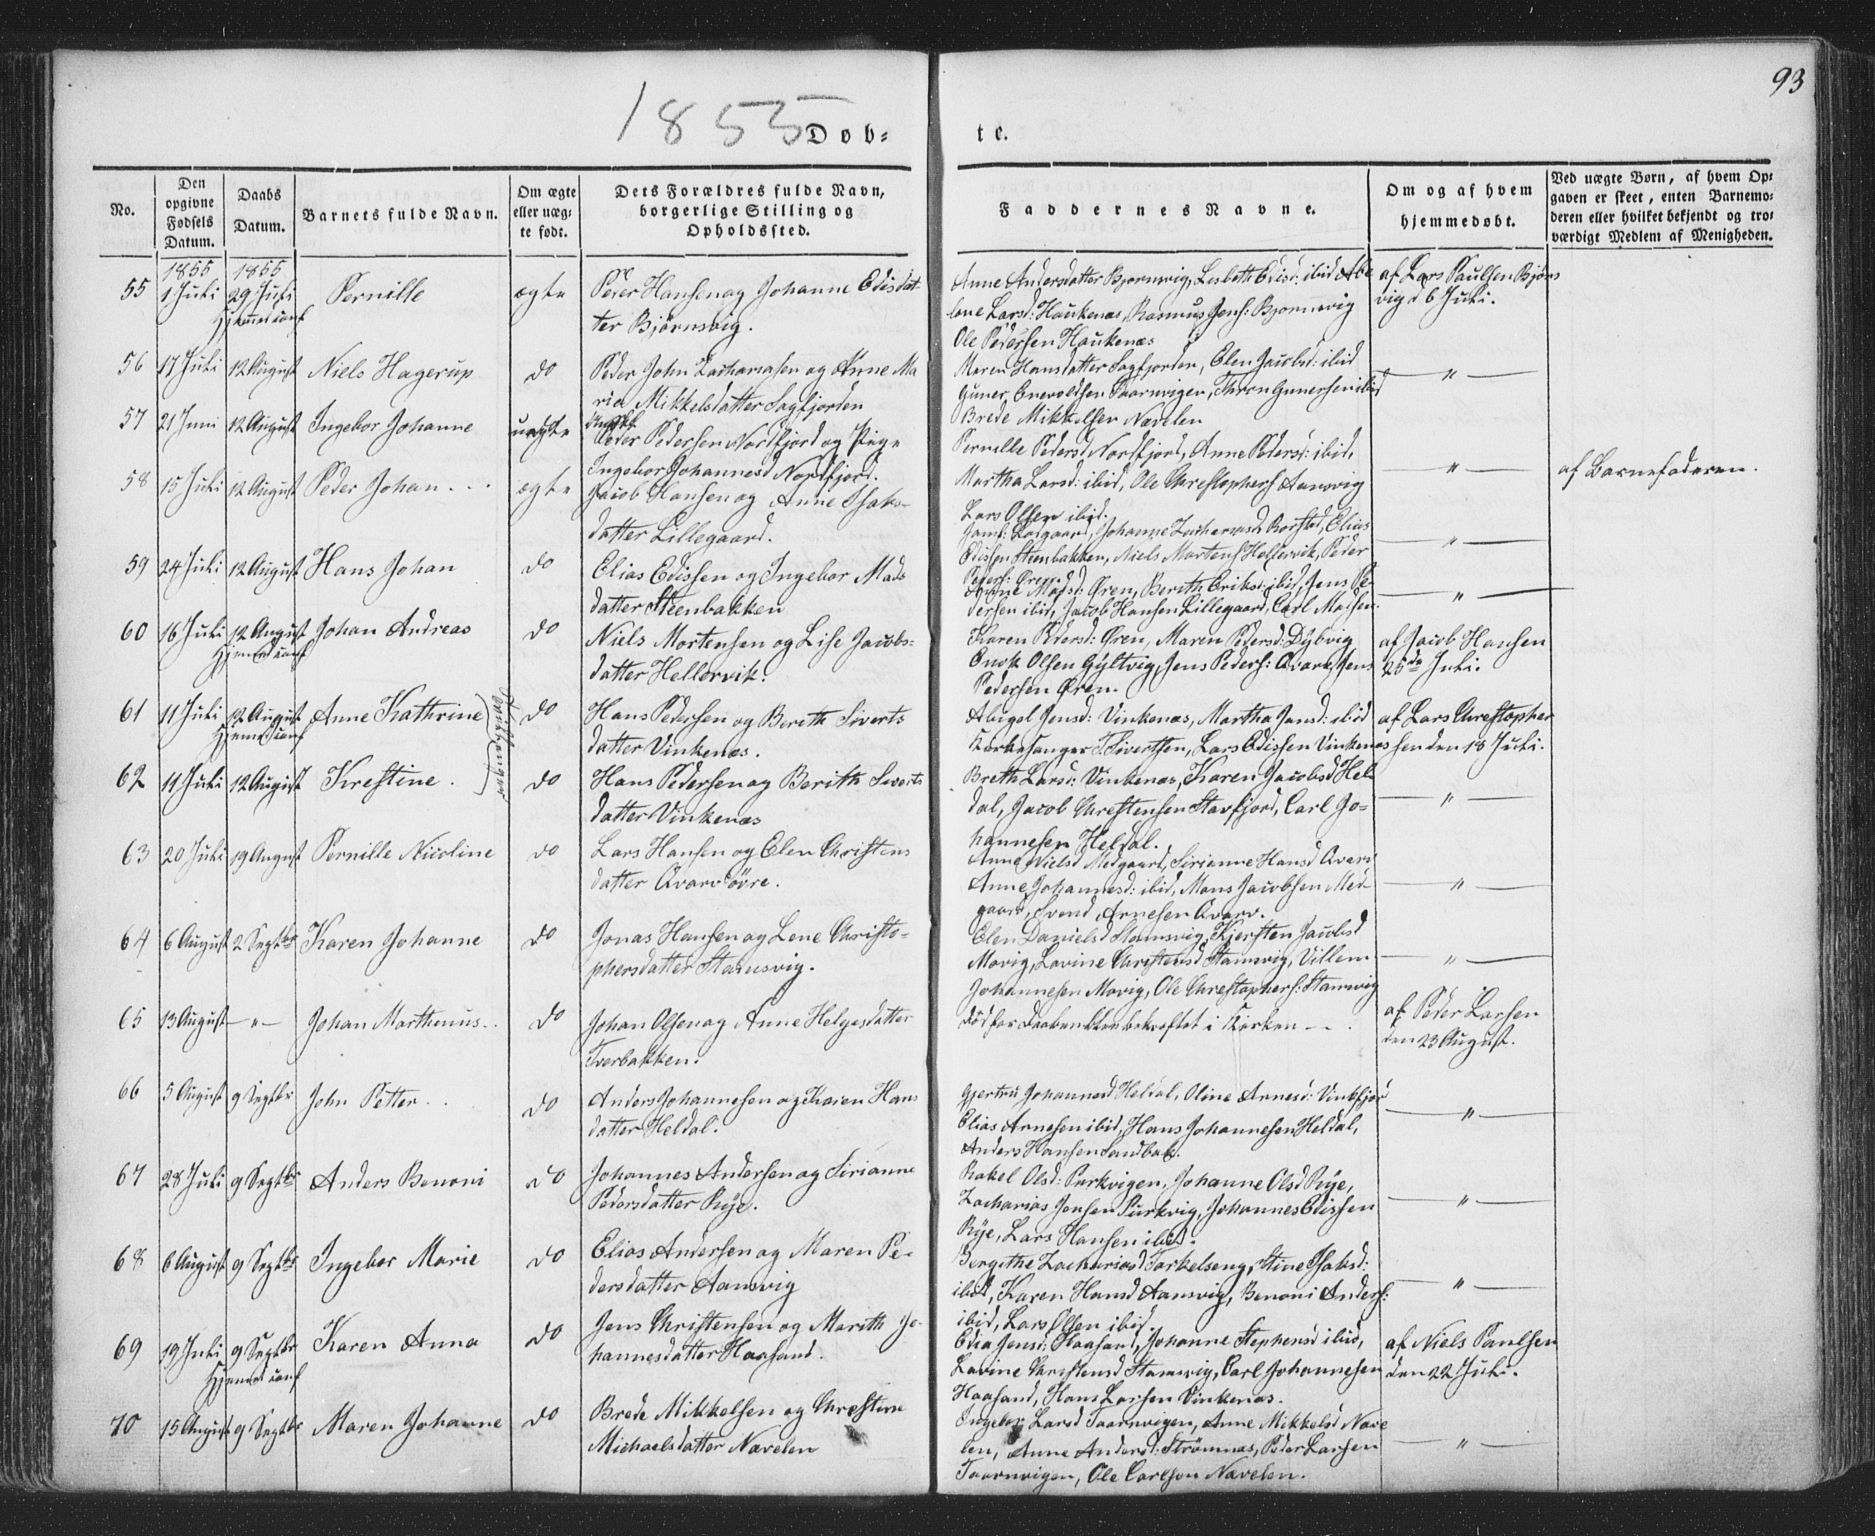 93
1855 Døb-
te.
No.
Den opgivne Fødsels Datum.
Daabs Datum.
Barnets fulde Navn.
Om ægte eller uægte født.
Dets Forældres fulde Navn, borgerlige Stilling og Opholdssted.
Faddernes Navne.
Om og af hvem hjemmedøbt.
Ved uægte Børn, af hvem Opgaven er skeet, enten Barnemoderen eller hvilket bekjendt og troværdigt Medlem af Menigheden.
1855 1855
55 1 Juli 29 Juli Pernille ægte Peder Hansen og Johanne Edisdat-
ter Bjørnsvig.
Anne Andersdatter Bjornsvig, Lisbeth Edisd: ibid Abe
lone Larsd: Haukenæs, Rasmus Jens: Bjornsvig
Ole Pedersen Haukenæs
af Lars Paulsen Bjørns
vig d 6 Juli.
56 17 Juli 12 August Niels Hagerup do Peder John Zachariasen og Anne Ma
ria Mikkelsdatter Sagfjorden
Maren Hansdatter Sagfjorden, Elen Jacobsd: ibid
Guner Enevoldsen Taarnvigen, Thron Gunersen ibid
Brede Mikkelsen Nævelen
"
57 21 Juni 12 August Ingebor Johanne uægte
Peder Pedersen Nordfjord og Pige
Ingebor Johannesd Nordfjord.
Pernille Pedersd Nordfjord, Anne Pedersd: ibid,
Martha Larsd: ibid, Ole Chrestophers Aamsvig
Lars Olsen ibid.
" af Barnefaderen.
58 15 Juli 12 August Peder Johan ægte Jacob Hansen og Anne Isaks-
datter Lillegaard.
Johanne Zachariasd Borstad, Elias
Edissen Steenbakken, Niels Martens Hellervik, Peder
Peders: Øren.
"
59 24 Juli 12 August Hans Johan do Elias Edissen og Ingebor Mads
datter Steenbakken
Madsd: Øren, Bereth Eriksd: ibid, Jens Pe-
dersen ibid, Jacob Hansen Lillegaard, Carl Madsen
"
60 16 Juli 12 August Johan Andreas do Niels Mortensen og Lise Jacobs-
datter Hellervik.
Karen Pedersd: Øren, Maren Pedersd: Dybvig
Enok Olsen Gyltvig, Jens Peders: Qvarv, Jens
Pedersen Øren.
af Jacob Hansen
25de Juli.
61 11 Juli 12 August Anne Kathrine do Hans Pedersen og Bereth Siverts
datter Vinkenæs.
Abigel Jensd: Vinkenæs, Martha Jansd: ibid
Kirkesanger Sivertsen, Lars Edissen Vinkenæs
af Lars Chrestopher
sen den 18 Juli.
62 11 Juli 12 August Krestine. do Hans Pedersen og Berith Siverts
datter Vinkenæs
Breth Larsd: Vinkenæs, Karen Jacobsd Hel
dal, Jacob Chrestensen Storfjord, Carl Jo-
hannesen Heldal.
"
63 20 Juli 19 August Pernille Nicoline do Lars Hansen og Elen Christens
datter Qvarv øvre.
Anne Nielsd Medgaard, Sirianne Hansd Qvarv
Anne Johannesd: ibid, Mons Jacobsen Med
gaard, Svend Arnesen Qvarv.
"
64 6 August 2 Septbr Karen Johanne do Jonas Hansen og Lene Christo-
phersdatter Stamsvig.
Elen Danielsd Stamsvig, Kjersten Jacobsd
Movig, Lovine Chrestensd Stamsvig, Villem
Johannesen Movig, Ole Chrestophers: Stamsvig
"
65 13 August " Johan Marthinus. do Johan Olsen og Anne Helgesdatter
Tverbakken.
død før Daaben blev bekræftet i Kirken
af Peder Larsen
den 23 August.
66 5 August 9 Septbr John Petter. do Anders Johannesen og Karen Hans
datter Heldal.
Gjertru Johannesd Heldal, Oline Arnesd: Vinkfjord
Elias Arnesen ibid, Hans Johannesen Heldal,
Anders Hansen Sandbak.
"
67 28 Juli 9 Septbr Anders Benoni do Johannes Andersen og Sirianne
Pedersdatter Rye.
Rakel Olsd: Purkvigen, Johanne Olsd Rye,
Zacharias Jensen Purkvig, Johannes Edissen
Rye, Lars Hansen ibid.
"
68 6 August 9 Septbr Ingebor Marie do Elias Andersen og Maren Pe-
dersdatter Aamsvig
Bergithe Zachariasd Torkelseng, Stine Isaksd:
ibid, Karen Hansd Aamsvig, Benoni Anders:
ibid, Lars Olsen ibid.
"
69 19 Juli 9 Septbr Karen Anna do Jens Christensen og Marith Jo-
hannesdatter Haasand.
Edia Jensd: Haasand, Johanne Stephensd ibid,
Lovine Chrestensd Stamsvig, Carl Johannesen
Haasand, Hans Larsen Vinkenæs.
af Niels Paulsen
den 22 Juli.
70 15 August 9 Septbr Maren Johanne do Brede Mikkelsen og Chrestine
Michaelsdatter Nævelen
Ingebor Larsd Taarnvigen, Anne Mikkelsd Næve
len, Anne Andersd: Strømnæs, Peder Larsen
Taarnvigen, Ole Carlsen Nævelen.
"